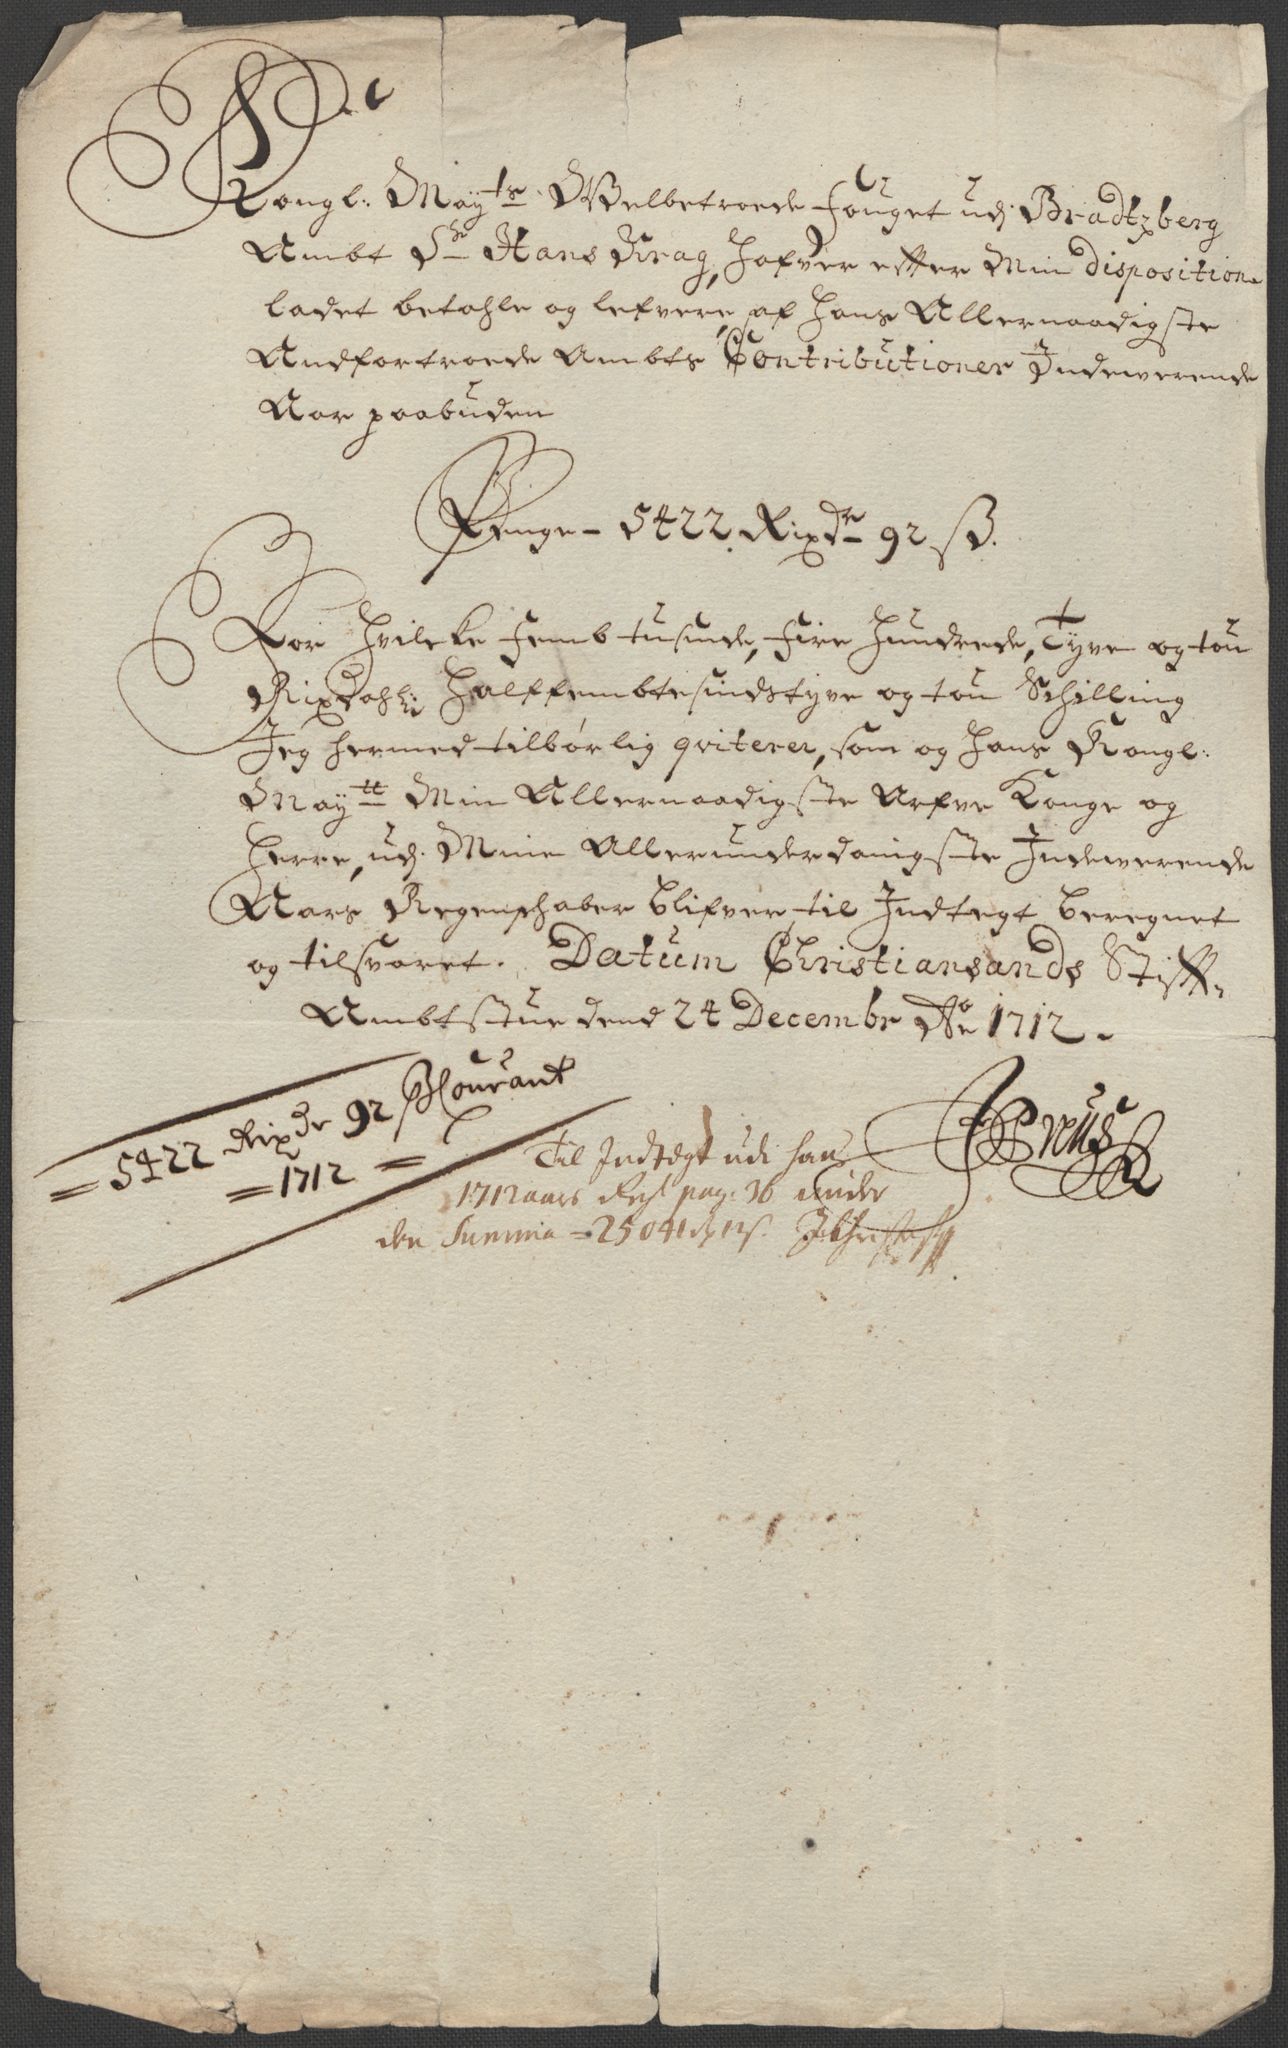 Kongl: May<sup>ts</sup> Welbetroede Fouget udj Bradtzberg
Ambt S<sup>r</sup> Hans Krag, Hafver effter Min disposition
ladet betahle og lefvere, af Hans Allernaadigste
Andfortroede Ambts Contributioner Indewerende
Aar paabuden
Penge - 5422 Rixd<sup>r</sup> 92 ß.
For Hvilcke Femb tusinde, Fire Hundrede, Tyve og tou
Rixdahl: Halffembtesindstyve og tou Schilling
Jeg Hermed tilbørlig qviterer, som og Hans Kongl:
May<sup>tt</sup> Min Allernaadigste Arfve Konge og
Herre, udj. Mine Allerunderdanigste Indewerende
Aars Regenschaber blifver til Indtegt beregnet
og tilsvaret. Datum Christiansands Stiff-
Ambtstue dend 24 Decembr A<sup>o</sup> 1712.
= 5422 Rixdr 92 ß Courant
= 1712 =
Til Indtægt udi hans
1712 aars Regl pag: 36 under
den Summa = 2504